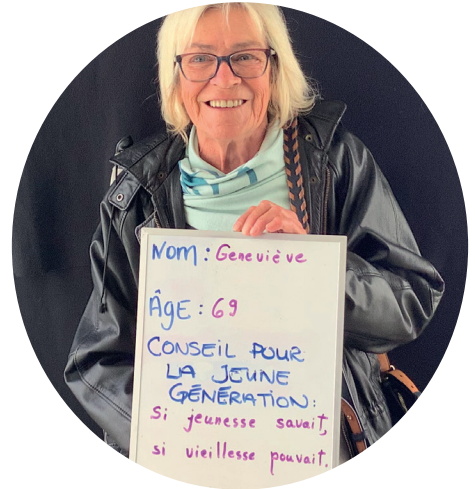 Nom : Geneviève
Âge : 69
CONSEIL POUR
LA JEUNE
GÉNÉRATION :
Si jeunesse savait,
si vieillesse pouvait.